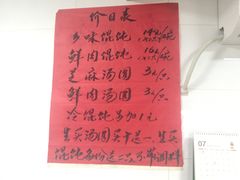 价目表
乡味馄饨 14元/碗
鲜肉馄饨 16元/碗
芝麻汤圆 3元/只
鲜肉汤圆 3元/只
冷馄饨另加1元
生买汤圆买十送一 生买
馄饨每份送二只 不带调料
07